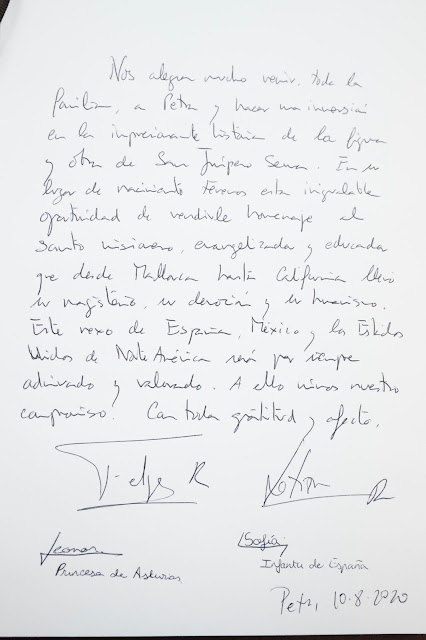 Nos alegra mucho venir, toda la
familia, a Petra y hacer una inmersión
en la impresionante historia de la figura
y obra de San Junípero Serra. En su
lugar de nacimiento tenemos esta inigualable
oportunidad de rendirle homenaje al
santo misionero, evangelizador y educador
que desde Mallorca hasta California llevó
su magisterio, su devoción y su humanismo.
Este nexo de España, México y los Estados
Unidos de Norte América será por siempre
admirado y valorado. A ello unimos nuestro
compromiso. Con toda gratitud y afecto,
Felipe R Letizia R
Leonor Sofía
Princesa de Asturias Infanta de España
Petra, 10-8-2020